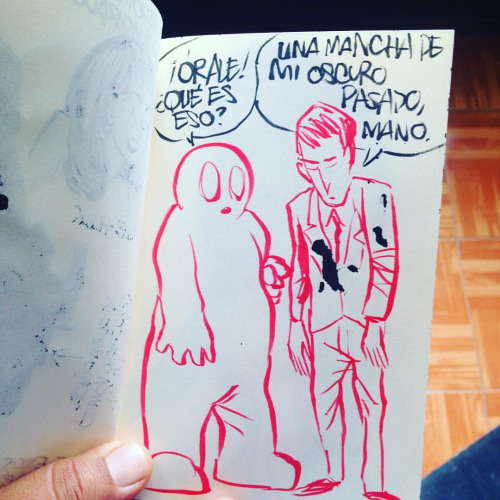 ¡ÓRALE!
¿QUÉ ES
ESO?
UNA MANCHA DE
MI OSCURO
PASADO,
MANO.